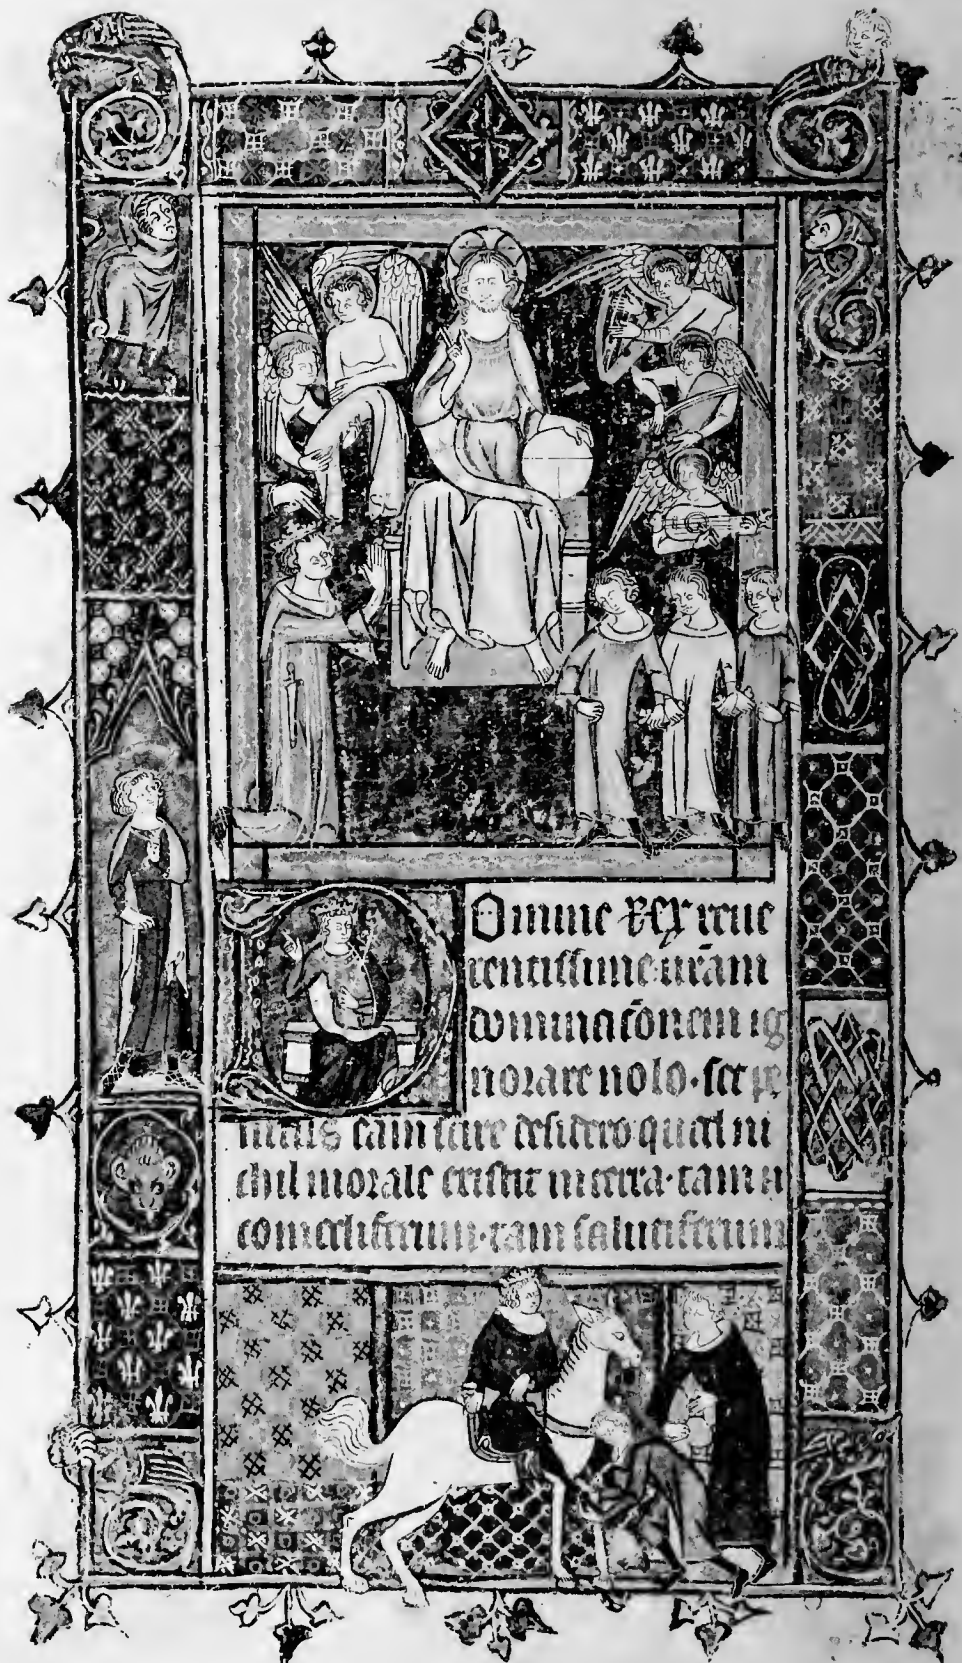 Omine Rex reue
rentissime urām
dominacōnem ig
norare nolo. set po
cius eam scire desidero quod ni
chil morale existit in terra. tam
tam salutiferum